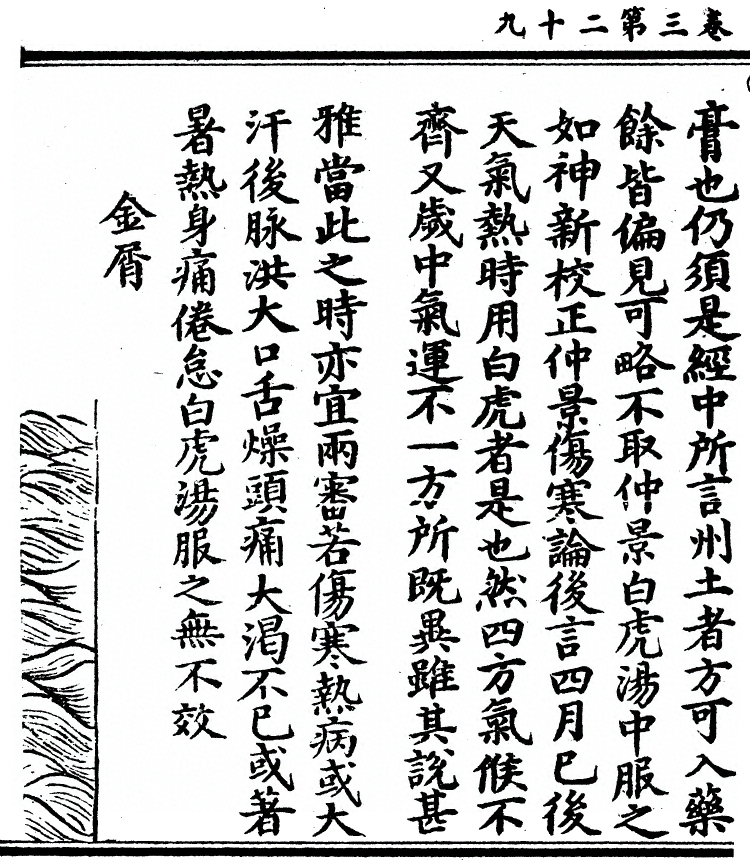 卷三第二十九
膏也仍須是經中所言州土者方可入藥
餘皆偏見可略不取仲景白虎湯中服之
如神新校正仲景傷寒論後言四月已後
天氣熱時用白虎者是也然四方氣候不
齊又歲中氣運不一方所既異雖其說甚
雅當此之時亦宜兩審若傷寒熱病或大
汗後脉洪大口舌燥頭痛大渴不已或著
暑熱身痛倦怠白虎湯服之無不效
金屑